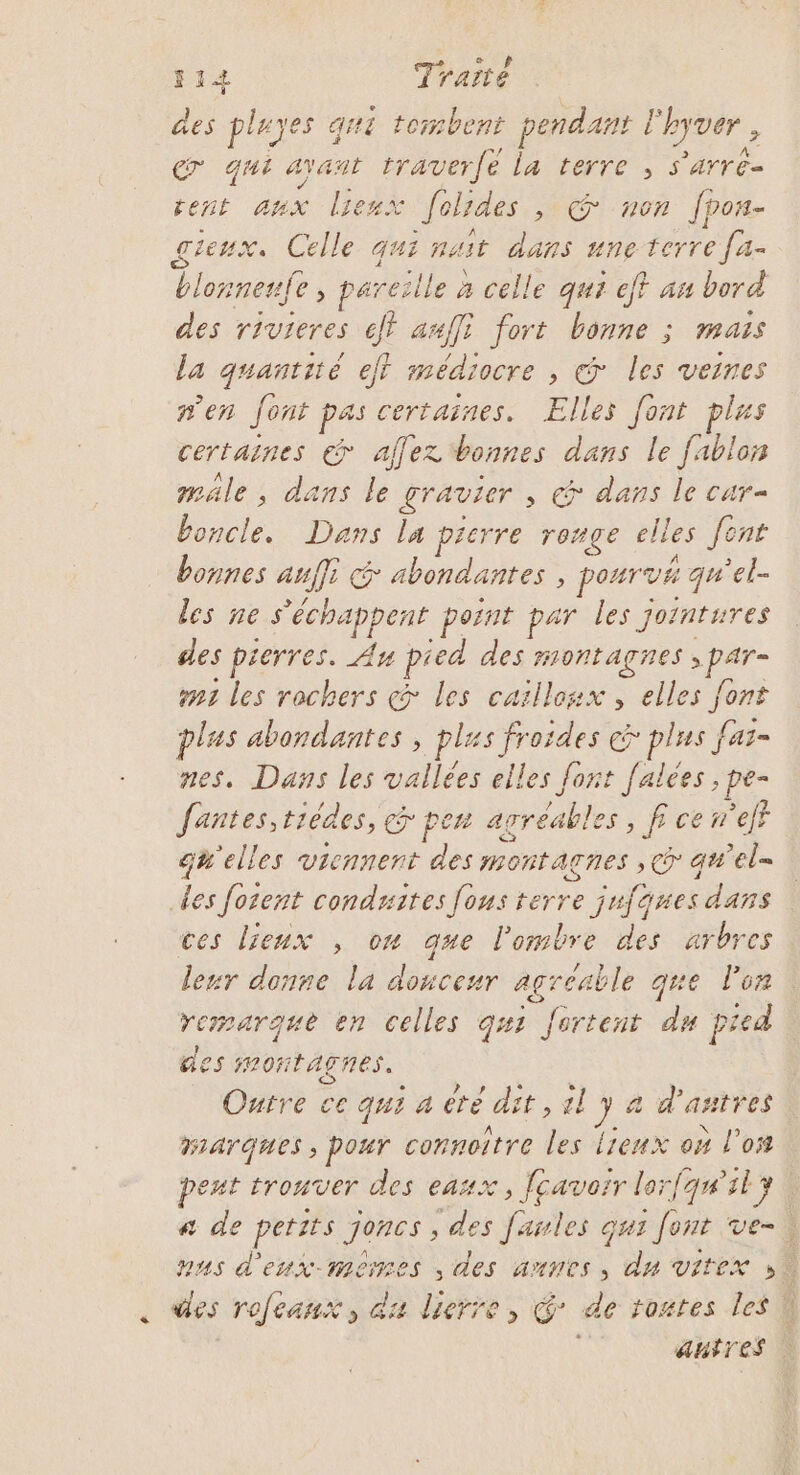 114 Traité
des pluyes qui tombent pendant l'hyver,
& qui ayant traverſé la terre, s'arrê-
tent aux lieux ſolides, & non ſpon-
gieux. Celle qui naît dans une terre ſa-
blonneuſe, pareille à celle qui eſt au bord
des rivieres eſt auſſi fort bonne ; mais
la quantité eſt médiocre, & les veines
n'en ſont pas certaines. Elles ſont plus
certaines & aſſez bonnes dans le ſablon
mâle, dans le gravier, & dans le car-
boncle. Dans la pierre rouge elles ſont
bonnes auſſi & abondantes, pourvû qu'el-
les ne s'échappent point par les jointures
des pierres. Au pied des montagnes, par-
mi les rochers & les cailloux, elles ſont
plus abondantes, plus froides & plus ſai-
nes. Dans les vallées elles ſont ſalées, pe-
ſantes, tiédes, & peu agréables, ſi ce n'eſt
qu'elles viennent des montagnes, & qu'el-
les ſoient conduites ſous terre juſques dans
ces lieux, ou que l'ombre des arbres
leur donne la douceur agréable que l'on
remarque en celles qui ſortent du pied
des montagnes.
Outre ce qui a été dit, il y a d'autres
marques, pour connoître les lieux où l'on
peut trouver des eaux, ſçavoir lorſqu'il y
a de petits joncs, des ſaules qui ſont ve-
nus d'eux-mêmes, des aunes, du vitex,
des roſeaux, du lierre, & de toutes les
autres